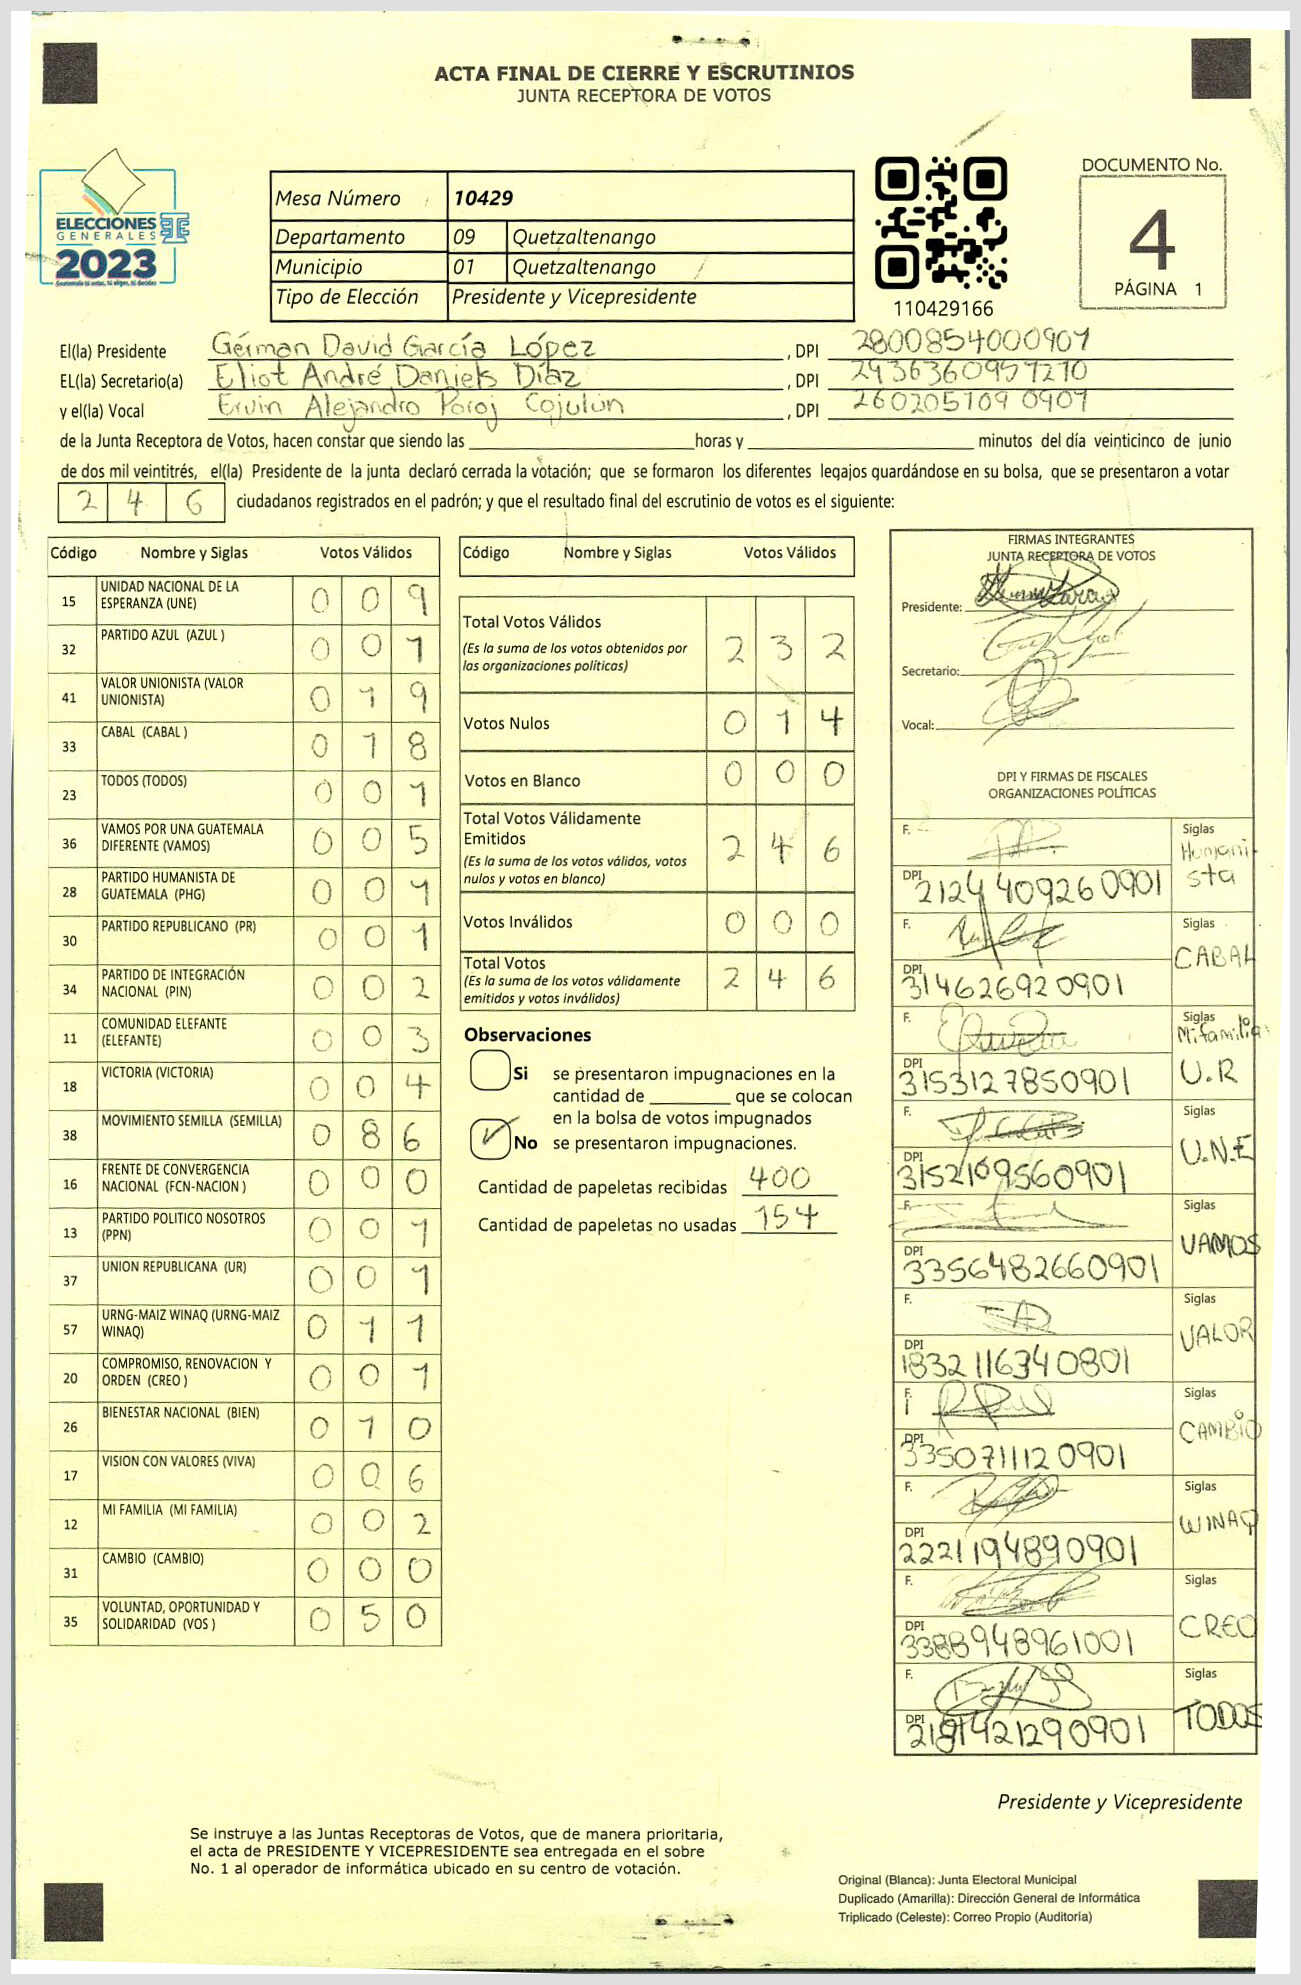 ACTA FINAL DE CIERRE Y ESCRUTINIOS
JUNTA RECEPTORA DE VOTOS
ELECCIONES
GENERALES
2023
Mesa Número 10429
Departamento 09 Quetzaltenango
Municipio 01 Quetzaltenango
Tipo de Elección Presidente y Vicepresidente
110429166
DOCUMENTO No.
4
PÁGINA 1
El(la) Presidente Gérman David García López, DPI 2800854000901
EL(la) Secretario(a) Eliot André Daniels Díaz, DPI
y el(la) Vocal Ervin Alejandro Poroj Cojulún, DPI 260205109 0901
de la Junta Receptora de Votos, hacen constar que siendo las ____ horas y ____ minutos del día veinticinco de junio
de dos mil veintitrés, el(la) Presidente de la junta declaró cerrada la votación; que se formaron los diferentes legajos guardándose en su bolsa, que se presentaron a votar
2 4 6 ciudadanos registrados en el padrón; y que el resultado final del escrutinio de votos es el siguiente:
Código Nombre y Siglas Votos Válidos
15 UNIDAD NACIONAL DE LA ESPERANZA (UNE) 0 0 9
32 PARTIDO AZUL (AZUL ) 0 0 1
41 VALOR UNIONISTA (VALOR UNIONISTA) 0 1 9
33 CABAL (CABAL ) 0 1 8
23 TODOS (TODOS) 0 0 1
36 VAMOS POR UNA GUATEMALA DIFERENTE (VAMOS) 0 0 5
28 PARTIDO HUMANISTA DE GUATEMALA (PHG) 0 0 1
30 PARTIDO REPUBLICANO (PR) 0 0 1
34 PARTIDO DE INTEGRACIÓN NACIONAL (PIN) 0 0 2
11 COMUNIDAD ELEFANTE (ELEFANTE) 0 0 3
18 VICTORIA (VICTORIA) 0 0 4
38 MOVIMIENTO SEMILLA (SEMILLA) 0 8 6
16 FRENTE DE CONVERGENCIA NACIONAL (FCN-NACION ) 0 0 0
13 PARTIDO POLITICO NOSOTROS (PPN) 0 0 1
37 UNION REPUBLICANA (UR) 0 0 1
57 URNG-MAIZ WINAQ (URNG-MAIZ WINAQ) 0 1 1
20 COMPROMISO, RENOVACION Y ORDEN (CREO ) 0 0 1
26 BIENESTAR NACIONAL (BIEN) 0 1 0
17 VISION CON VALORES (VIVA) 0 0 6
12 MI FAMILIA (MI FAMILIA) 0 0 2
31 CAMBIO (CAMBIO) 0 0 0
35 VOLUNTAD, OPORTUNIDAD Y SOLIDARIDAD (VOS ) 0 5 0
Código Nombre y Siglas Votos Válidos
Total Votos Válidos 2 3 2
(Es la suma de los votos obtenidos por
las organizaciones políticas)
Votos Nulos 0 1 4
Votos en Blanco 0 0 0
Total Votos Válidamente
Emitidos 2 4 6
(Es la suma de los votos válidos, votos
nulos y votos en blanco)
Votos Inválidos 0 0 0
Total Votos 2 4 6
(Es la suma de los votos válidamente
emitidos y votos inválidos)
Observaciones
Si se presentaron impugnaciones en la
cantidad de ____ que se colocan
en la bolsa de votos impugnados
No se presentaron impugnaciones.
Cantidad de papeletas recibidas 400
Cantidad de papeletas no usadas 154
FIRMAS INTEGRANTES
JUNTA RECEPTORA DE VOTOS
Presidente:
Secretario:
Vocal:
DPI Y FIRMAS DE FISCALES
ORGANIZACIONES POLÍTICAS
F. Siglas Humanista
DPI 2124 409260901
F. Siglas CABAL
DPI 314626920901
F. Siglas Mifamilia U.R
DPI 3153127850901
F. Siglas U.N.E
DPI 3152109560901
F. Siglas VAMOS
DPI 3356482660901
F. Siglas VALOR
DPI 1832116340801
F. Siglas CAMBIO
DPI 3350711120901
F. Siglas WINAQ
DPI 2221194890901
F. Siglas CREO
DPI 3388948961001
F. Siglas TODOS
DPI 2191421290901
Presidente y Vicepresidente
Se instruye a las Juntas Receptoras de Votos, que de manera prioritaria,
el acta de PRESIDENTE Y VICEPRESIDENTE sea entregada en el sobre
No. 1 al operador de informática ubicado en su centro de votación.
Original (Blanca): Junta Electoral Municipal
Duplicado (Amarilla): Dirección General de Informática
Triplicado (Celeste): Correo Propio (Auditoría)